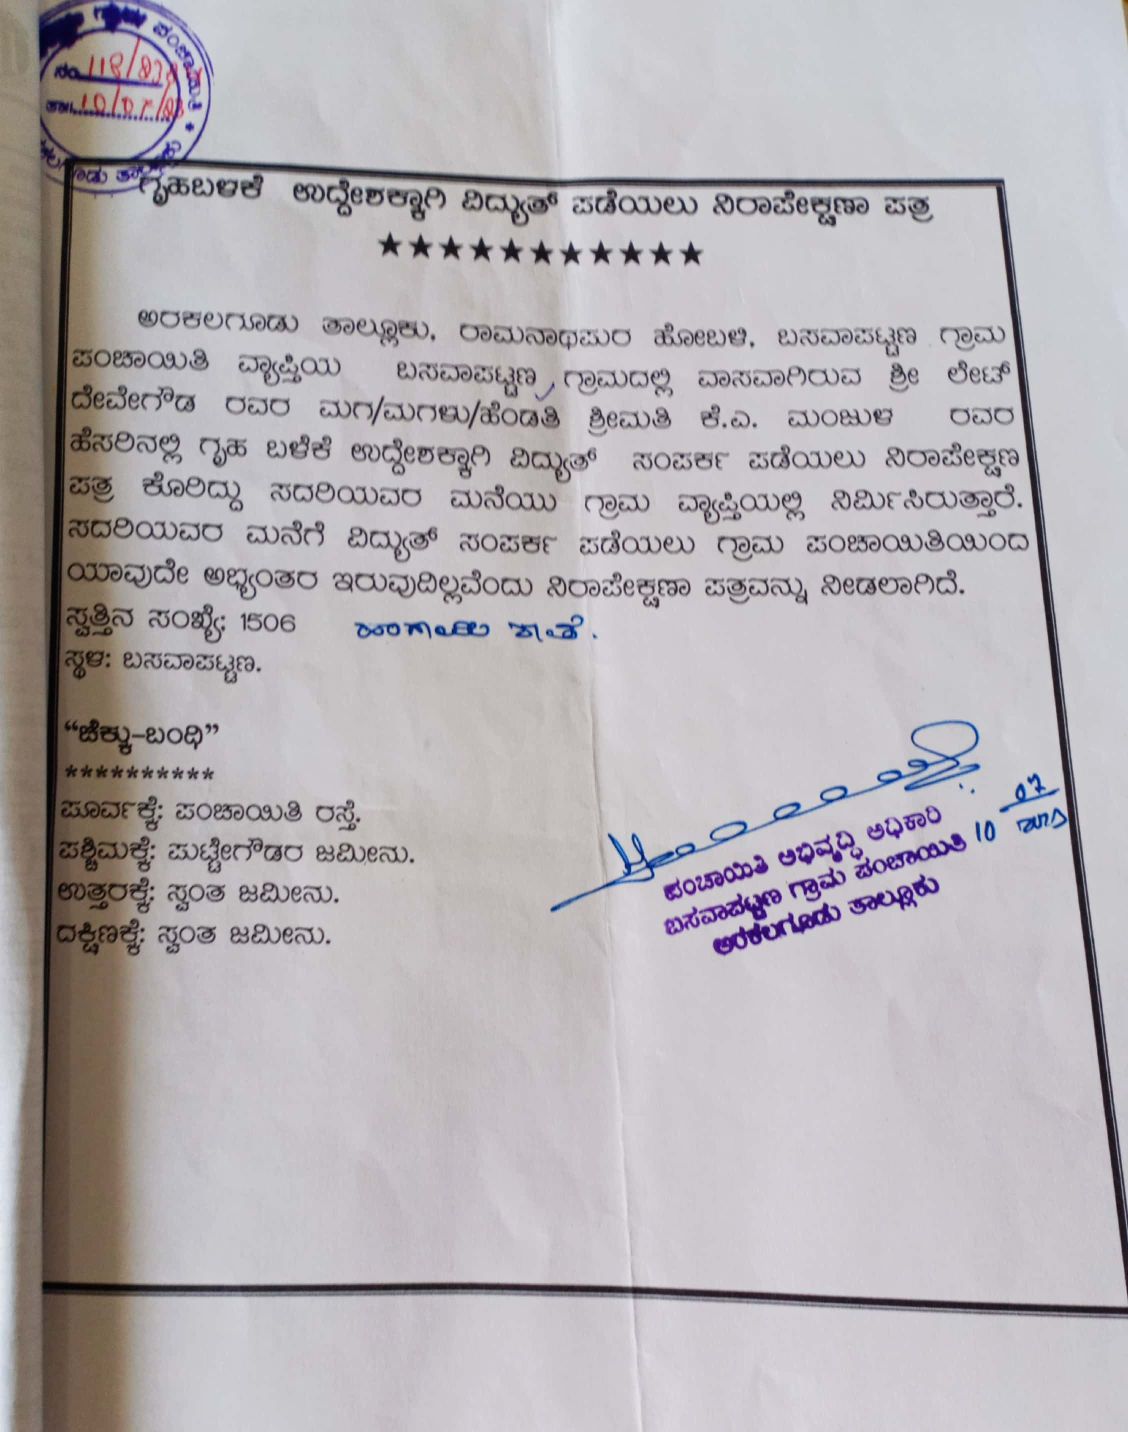 ಗ್ರಾಮ ಪಂಚಾಯಿತಿ *
ನಂ. 118/23
ತಾ|| 10/07/23
ಅರಕಲಗೂಡು ತಾಲ್ಲೂಕು
ಗೃಹಬಳಕೆ ಉದ್ದೇಶಕ್ಕಾಗಿ ವಿದ್ಯುತ್ ಪಡೆಯಲು ನಿರಾಪೇಕ್ಷಣಾ ಪತ್ರ
★★★★★★★★★★★
ಅರಕಲಗೂಡು ತಾಲ್ಲೂಕು, ರಾಮನಾಥಪುರ ಹೋಬಳಿ, ಬಸವಾಪಟ್ಟಣ ಗ್ರಾಮ
ಪಂಚಾಯಿತಿ ವ್ಯಾಪ್ತಿಯ ಬಸವಾಪಟ್ಟಣ ಗ್ರಾಮದಲ್ಲಿ ವಾಸವಾಗಿರುವ ಶ್ರೀ ಲೇಟ್
ದೇವೇಗೌಡ ರವರ ಮಗ/ಮಗಳು/ಹೆಂಡತಿ ಶ್ರೀಮತಿ ಕೆ.ಎ. ಮಂಜುಳ ರವರ
ಹೆಸರಿನಲ್ಲಿ ಗೃಹ ಬಳಕೆ ಉದ್ದೇಶಕ್ಕಾಗಿ ವಿದ್ಯುತ್ ಸಂಪರ್ಕ ಪಡೆಯಲು ನಿರಾಪೇಕ್ಷಣ
ಪತ್ರ ಕೋರಿದ್ದು ಸದರಿಯವರ ಮನೆಯು ಗ್ರಾಮ ವ್ಯಾಪ್ತಿಯಲ್ಲಿ ನಿರ್ಮಿಸಿರುತ್ತಾರೆ.
ಸದರಿಯವರ ಮನೆಗೆ ವಿದ್ಯುತ್ ಸಂಪರ್ಕ ಪಡೆಯಲು ಗ್ರಾಮ ಪಂಚಾಯಿತಿಯಿಂದ
ಯಾವುದೇ ಅಭ್ಯಂತರ ಇರುವುದಿಲ್ಲವೆಂದು ನಿರಾಪೇಕ್ಷಣಾ ಪತ್ರವನ್ನು ನೀಡಲಾಗಿದೆ.
ಸ್ವತ್ತಿನ ಸಂಖ್ಯೆ: 1506
ಸ್ಥಳ: ಬಸವಾಪಟ್ಟಣ.
“ಚೆಕ್ಕು-ಬಂಧಿ”
**********
ಪೂರ್ವಕ್ಕೆ: ಪಂಚಾಯಿತಿ ರಸ್ತೆ.
ಪಶ್ಚಿಮಕ್ಕೆ: ಪುಟ್ಟೇಗೌಡರ ಜಮೀನು.
ಉತ್ತರಕ್ಕೆ: ಸ್ವಂತ ಜಮೀನು.
ದಕ್ಷಿಣಕ್ಕೆ: ಸ್ವಂತ ಜಮೀನು.
10 07
ಪಂಚಾಯಿತಿ ಅಭಿವೃದ್ಧಿ ಅಧಿಕಾರಿ
ಬಸವಾಪಟ್ಟಣ ಗ್ರಾಮ ಪಂಚಾಯಿತಿ
ಅರಕಲಗೂಡು ತಾಲ್ಲೂಕು